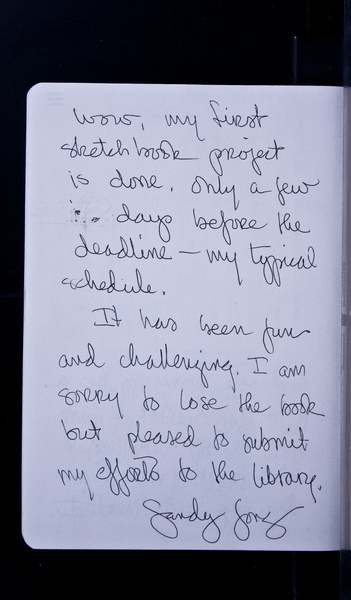 Wow, my first
sketchbook project
is done. Only a few
days before the
deadline - my typical
schedule.
It has been fun
and challenging. I am
sorry to lose the book
but pleased to submit
my efforts to the library.
Sandy